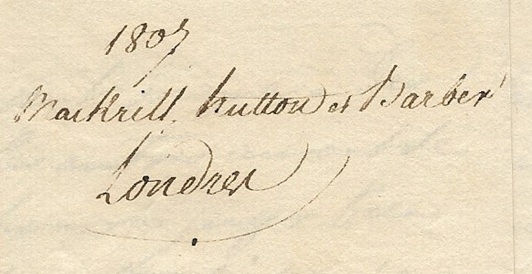 1807
Mackrill, hutton et Barber
Londres